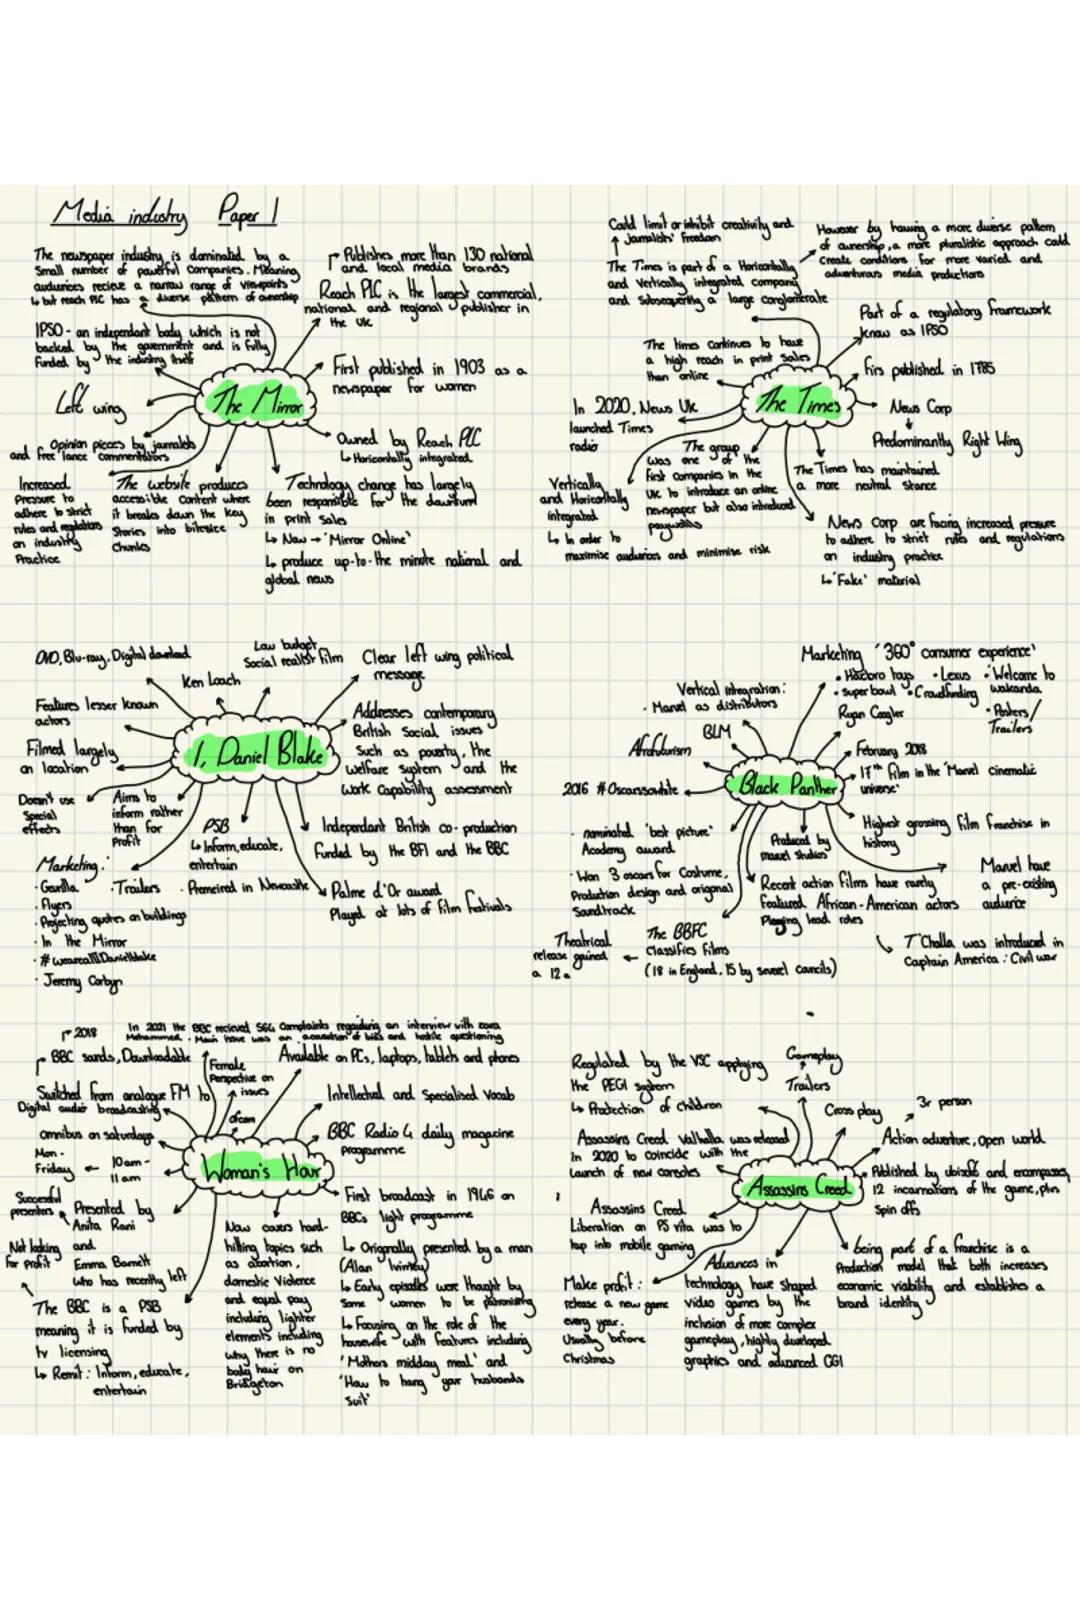 Media industry Paper 1
The newspaper industry is dominated by a
small number of powerful companies. Meaning
audiences recieve a narrow range of viewpoints
↳ but reach PLC has a diverse pattern of ownership
Publishes more than 130 national
and local media brands
Reach PLC is the largest commercial,
national and regional publisher in
the UK
IPSO - an independant body which is not
backed by the government and is fully
funded by the industry itself
First published in 1903 as a
newspaper for women
Left wing
The Mirror
Opinion pieces by journalists
and free lance commentators
Owned by Reach PLC
↳ Horizontally integrated
Increased
Pressure to
adhere to strict
rules and regulations
on industry
Practice
The website produces
accessible content where
it breaks down the key
Stories into bitesize
Chunks
Technology change has largely
been responsible for the downturn
in print sales
↳ Now → 'Mirror Online'
↳ produce up-to-the minute national and
global news
Could limit or inhibit creativity and
Journalists' freedom
The Times is part of a Horizontally
and Vertically integrated company
and Subsequently a large conglomerate
However by having a more diverse pattern
of ownership, a more pluralistic approach could
Create conditions for more varied and
adventurous media productions
Part of a regulatory framework
know as IPSO
The times continues to have
a high reach in print sales
than online
The Times
Firs published in 1785
In 2020, News UK
launched Times
radio
News Corp
Predominantly Right Wing
Vertically
and Horizontally
integrated
↳ In order to
maximise audiences and minimise risk
The group
was one of the
first companies in the
UK to introduce an online
newspaper but also introduced
paywalls
The Times has maintained
a more neutral stance
News Corp are facing increased pressure
to adhere to strict rules and regulations
on industry practice
↳ 'Fake' material
DVD, Blu-ray, Digital download
Low budget
Social realist film
Clear left wing political
message
Ken Loach
Features lesser known
actors
Addresses contemporary
British Social issues
Such as poverty, the
welfare system and the
work capability assessment
I, Daniel Blake
Filmed largely
on location
Doesn't use
Special
effects
Aims to
inform rather
than for
profit
PSB
↳ Inform, educate,
entertain
Independant British co-production
funded by the BFI and the BBC
Marketing:
· Gorilla
· Flyers
· Projecting quotes on buildings
· In the Mirror
· Jeremy Corbyn
· Trailers
· Premeired in Newcastle
Palme d'Or award
Played at lots of film festivals
Marketing '360° consumer experience'
· Hasbro toys · Lexus · Welcome to
wakanda
· Super bowl · Crowdfunding
· Posters/
Trailers
Vertical integration:
· Marvel as distributors
BLM
Ryan Coogler
Afrofuturism
February 2018
17th film in the 'Marvel cinematic
universe'
2016 #Oscarssowhite
Black Panther
· nominated 'best picture'
Academy award.
· Won 3 oscars for Costume,
Production design and original
Soundtrack
Produced by
marvel studios
Highest grossing film franchise in
history
Marvel have
a pre-existing
audience
Recent action films have rarely
featured African-American actors
Playing lead roles
T'Challa was introduced in
Captain America: Civil war
The BBFC
classifies films
(18 in England, 15 by several councils)
Theatrical
release gained
a 12a
2018
In 2021 the BBC recieved 564 complaints regarding an interview with zara
Mohammed. Main issue was an accusation of bias and hostile questioning
BBC sands, Downloadable
Female
Perspective on
issues
Available on PCs, laptops, tablets and phones
Switched from analogue FM to
Digital audio broadcasting
Intellectual and Specialised Vocab
Ofcom
Omnibus on saturdays
Mon -
Friday
10am -
11am
Woman's Hour
BBC Radio 4 daily magazine
Programme
Successful
presenters
Presented by
Anita Rani
and
Emma Barnett
who has recently left
First broadcast in 1946 on
BBCs light programme
↳ Originally presented by a man
(Alan Ivimey)
↳ Early episodes were thought by
Some women to be patronising
↳ Focusing on the role of the
housewife with features including
'Mothers midday meal' and
'How to hang your husbands
Suit'
Not looking
for profit
The BBC is a PSB
meaning it is funded by
tv licensing
↳ Remit: Inform, educate,
entertain
Now covers hard-
hitting topics such
as abortion,
domestic Violence
and equal pay
including lighter
elements including
why there is no
body hair on
Bridgeton
Regulated by the VSC applying
the PEGI system
↳ Protection of children
Gameplay
Trailers
Cross play
3r person
Action adventure, open world
Assassins Creed Valhalla was released
in 2020 to coincide with the
launch of new consoles
Assassins Creed
Published by ubisoft and encompasses,
12 incarnations of the game, plus
Spin offs
Assassins Creed
Liberation on PS vita was to
tap into mobile gaming
Make profit:
release a new game
every year.
Usually before
Christmas
Advances in
technology have shaped
video games by the
inclusion of more complex
gameplay, highly developed
graphics and advanced CGI
being part of a franchise is a
Production model that both increases
economic viability and establishes a
brand identity